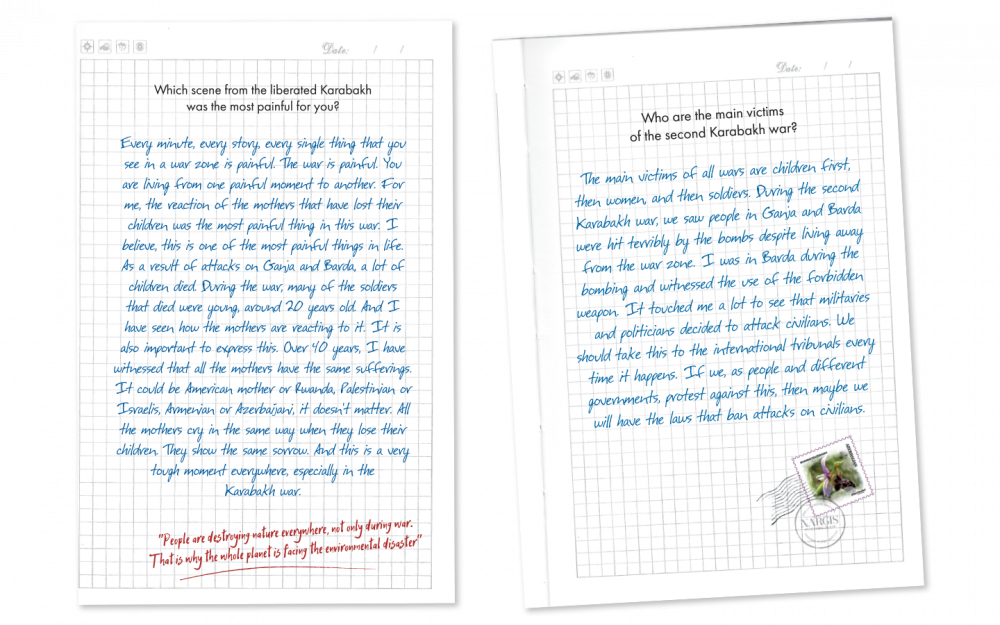 Date: / /
Which scene from the liberated Karabakh
was the most painful for you?
Every minute, every story, every single thing that you
see in a war zone is painful. The war is painful. You
are living from one painful moment to another. For
me, the reaction of the mothers that have lost their
children was the most painful thing in this war. I
believe, this is one of the most painful things in life.
As a result of attacks on Ganja and Barda, a lot of
children died. During the war, many of the soldiers
that died were young, around 20 years old. And I
have seen how the mothers are reacting to it. It is
also important to express this. Over 40 years, I have
witnessed that all the mothers have the same sufferings.
It could be American mother or Rwanda, Palestinian or
Israelis, Armenian or Azerbaijani, it doesn't matter. All
the mothers cry in the same way when they lose their
children. They show the same sorrow. And this is a very
tough moment everywhere, especially in the
Karabakh war.
"People are destroying nature everywhere, not only during war.
That is why the whole planet is facing the environmental disaster"
Date: / /
Who are the main victims
of the second Karabakh war?
The main victims of all wars are children first,
then women, and then soldiers. During the second
Karabakh war, we saw people in Ganja and Barda
were hit terribly by the bombs despite living away
from the war zone. I was in Barda during the
bombing and witnessed the use of the forbidden
weapon. It touched me a lot to see that militaries
and politicians decided to attack civilians. We
should take this to the international tribunals every
time it happens. If we, as people and different
governments, protest against this, then maybe we
will have the laws that ban attacks on civilians.
NARGIS